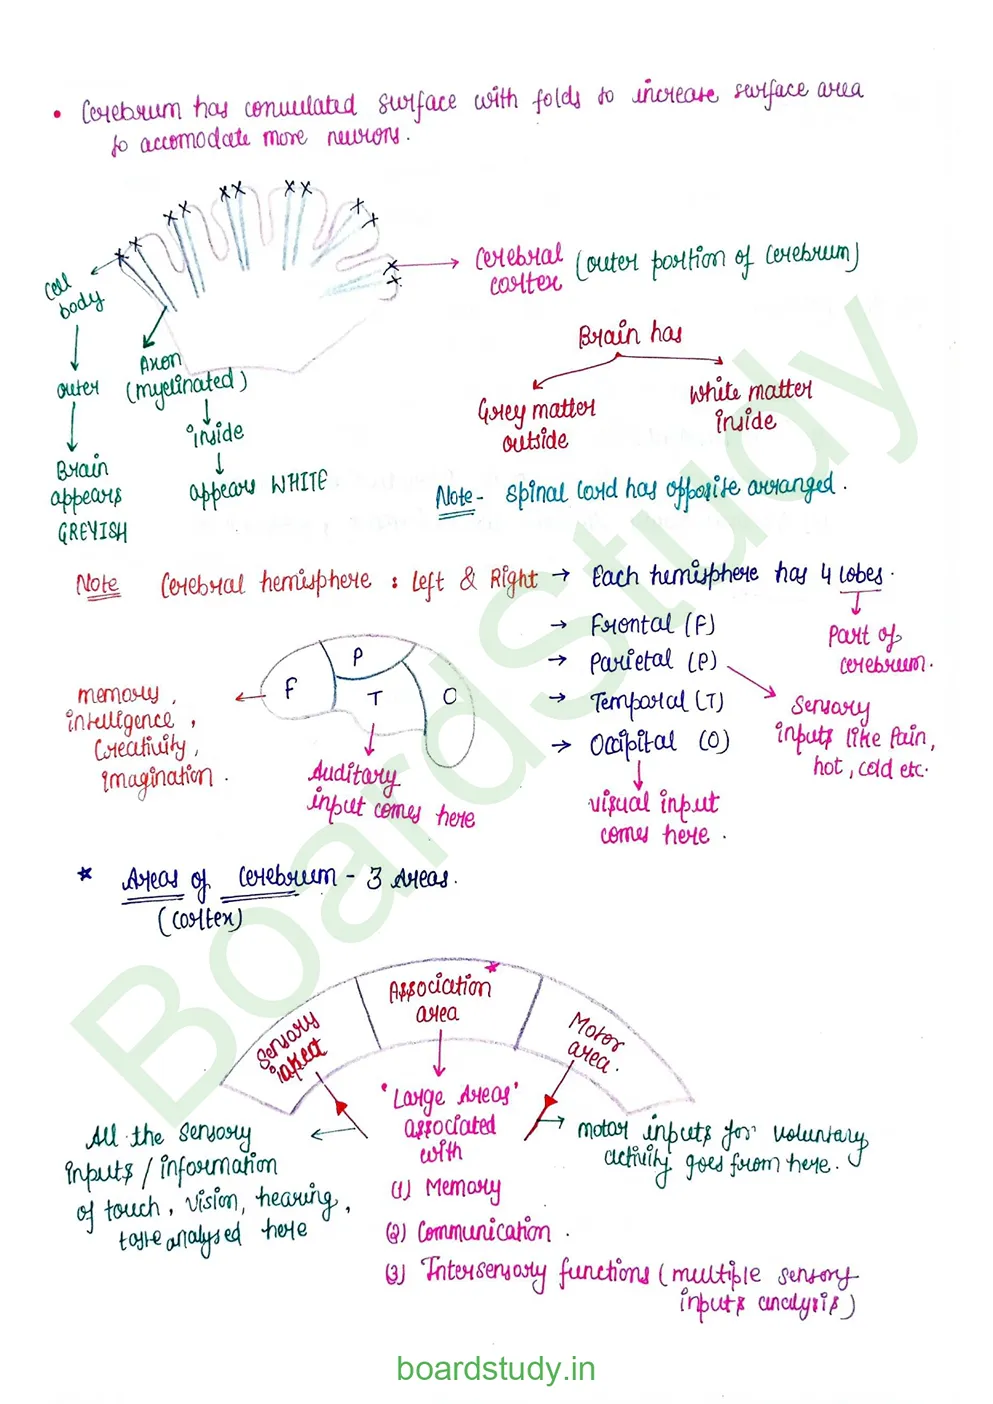 • Cerebrum has convulated surface with folds to increase surface area
to accomodate more neurons.
Cell
body
outer
Brain
appears
GREYISH
Axon
(myelinated)
inside
appears WHITE
Cerebral
cortex
(outer portion of Cerebrum)
Brain has
Grey matter
outside
White matter
inside
Note - Spinal Cord has opposite arranged.
Note Cerebral hemisphere : Left & Right → Each hemisphere has 4 lobes.
Part of
cerebrum.
→ Frontal (F)
→ Parietal (P)
→ Temporal (T)
→ Occipital (O)
Sensory
inputs like Pain,
hot, cold etc.
visual input
comes here.
F
P
T
O
memory,
intelligence,
Creativity,
imagination.
Auditary
input comes here
* Areas of Cerebrum - 3 Areas.
(Cortex)
Sensory
Association
area
Motor
area.
All the sensory
inputs / information
of touch, vision, hearing,
taste analysed here
'Large Areas'
associated
with
(1) Memory
(2) Communication.
(3) Intersensory functions (multiple sensory
inputs analysis)
motor inputs for voluntary
activity goes from here.
BoardStudy
boardstudy.in